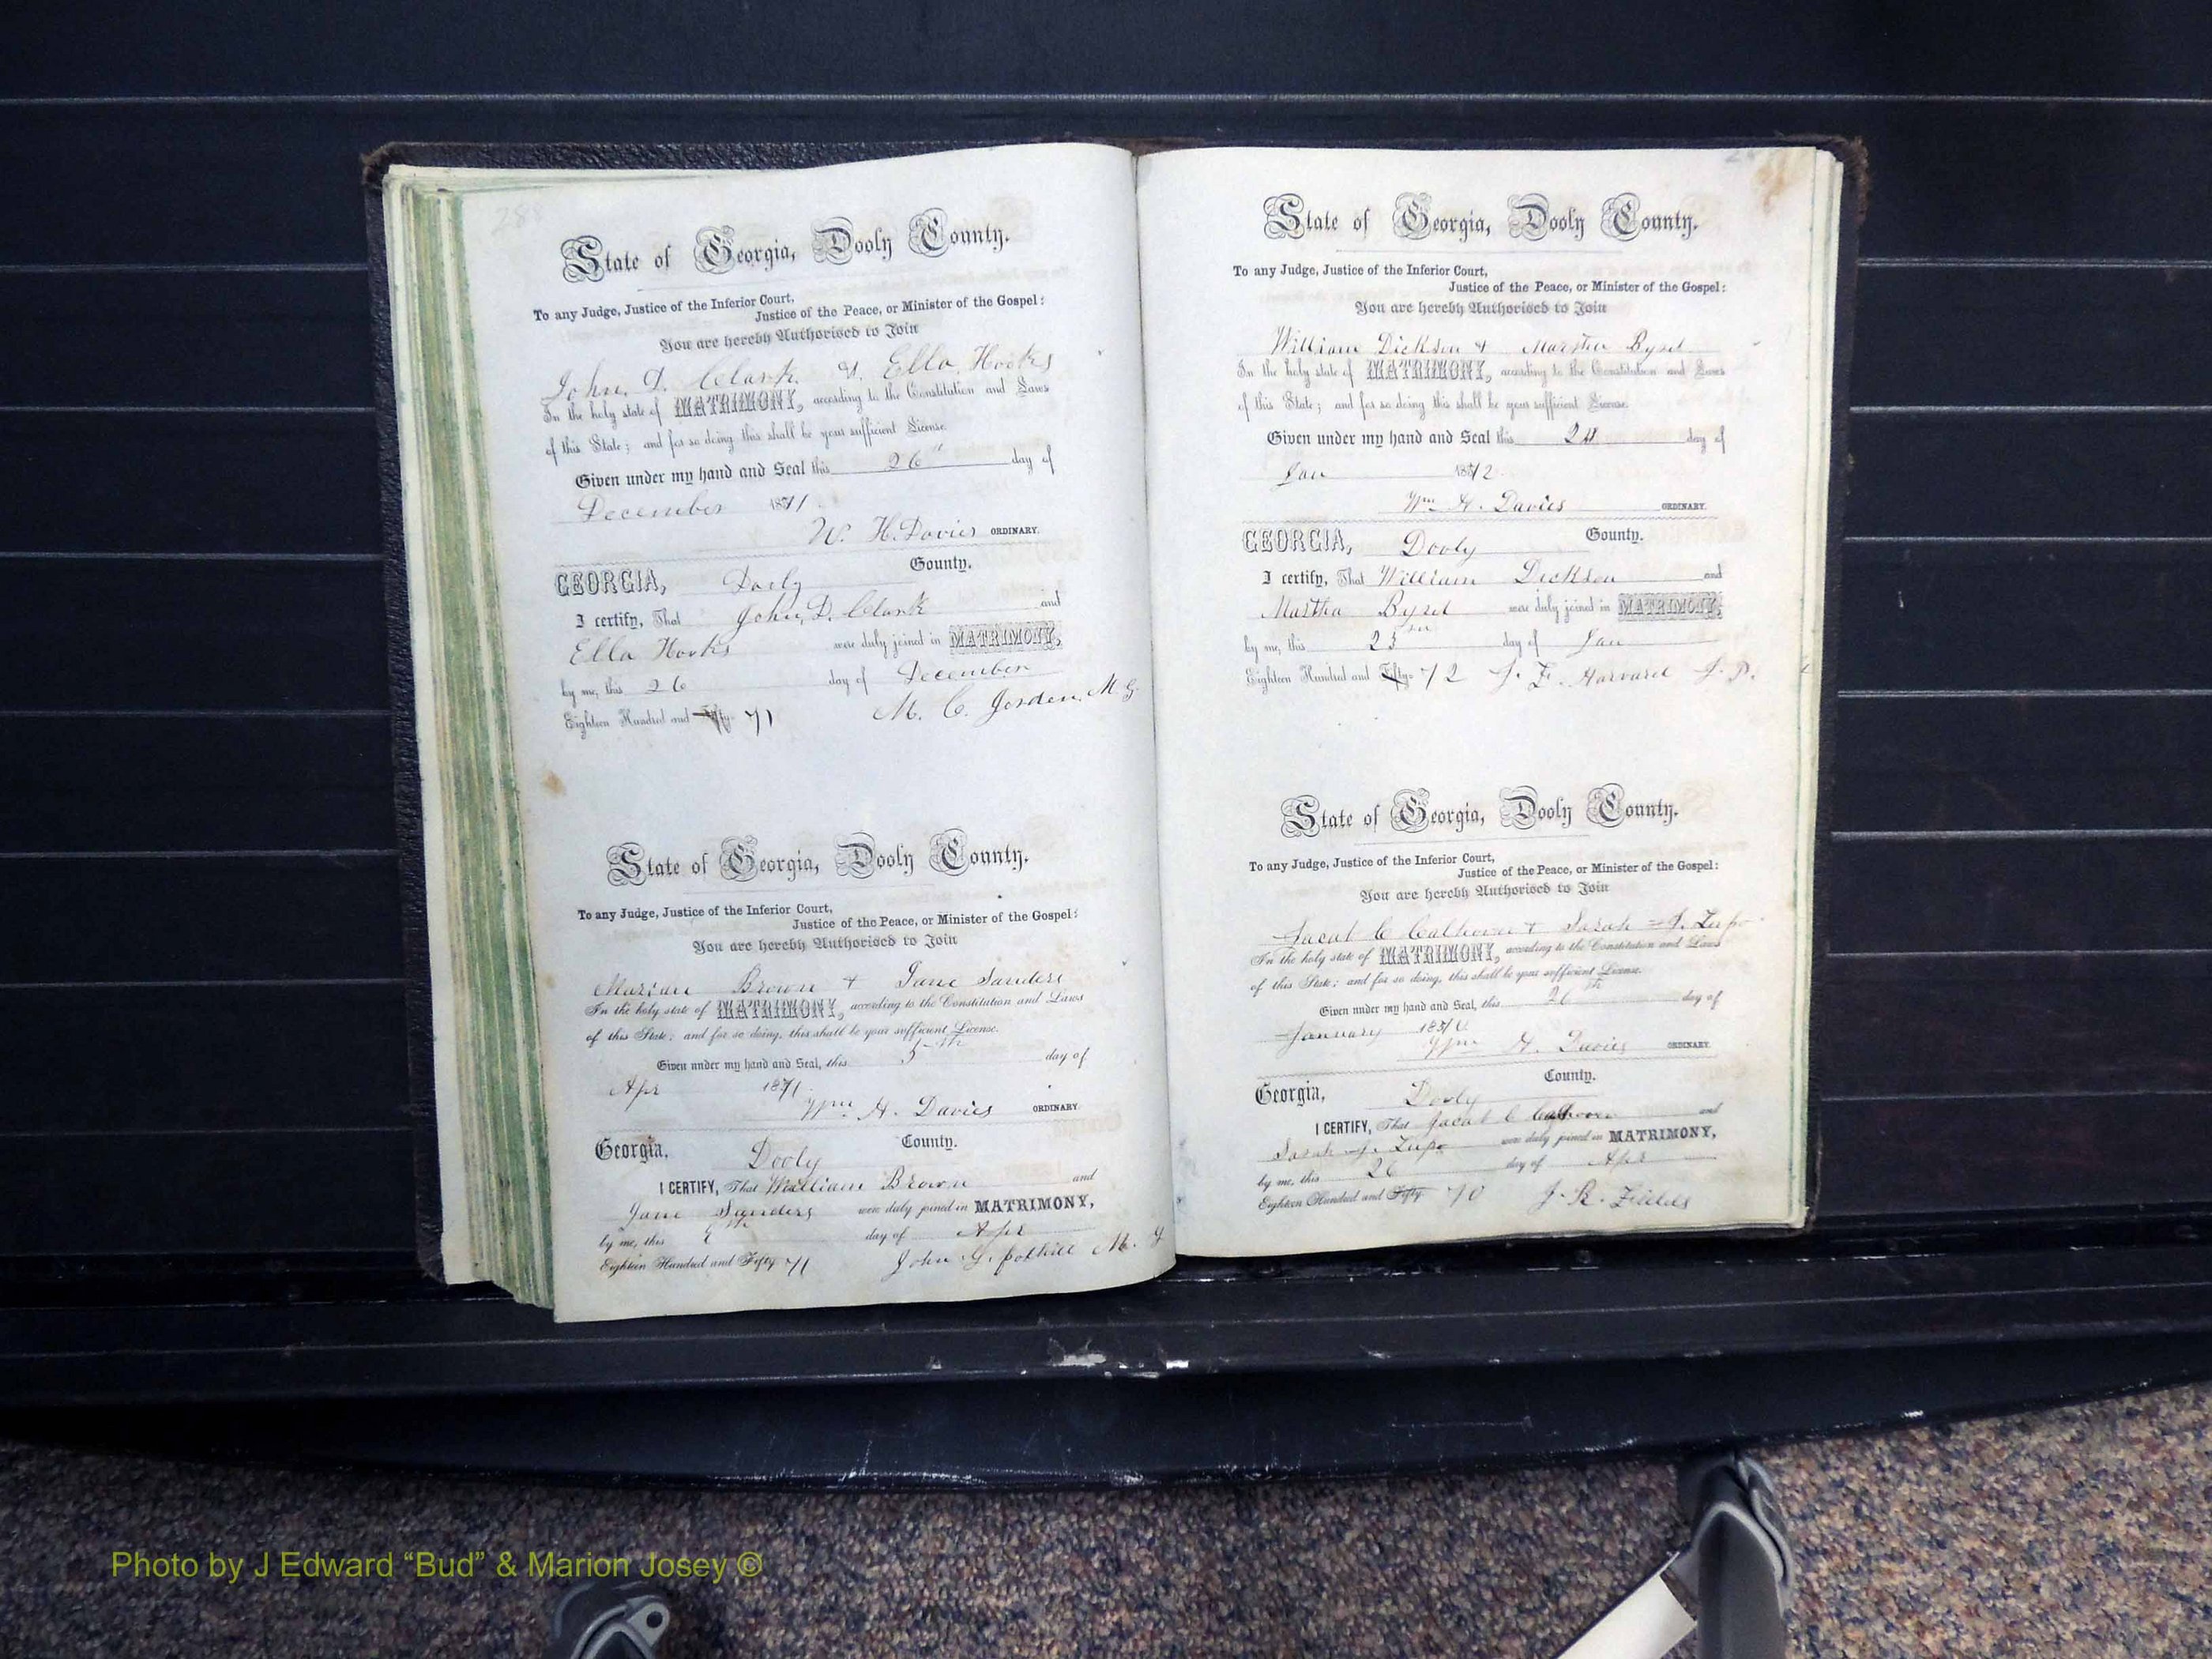 288
State of Georgia, Dooly County.
To any Judge, Justice of the Inferior Court,
Justice of the Peace, or Minister of the Gospel:
You are hereby Authorised to Join
John. D. Clark. &. Ella. Hooks
In the holy state of MATRIMONY, according to the Constitution and Laws
of this State; and for so doing this shall be your sufficient License.
Given under my hand and Seal this 26" day of
December 1871.
W. H. Davies ORDINARY.
GEORGIA, Dooly County.
I certify, That John, D. Clark and
Ella Hooks were duly joined in MATRIMONY,
by me, this 26 day of December
Eighteen Hundred and Fifty- 71 M. C. Jorden. M. G.
State of Georgia, Dooly County.
To any Judge, Justice of the Inferior Court,
Justice of the Peace, or Minister of the Gospel:
You are hereby Authorised to Join
Brown & Jane Sanders
In the holy state of MATRIMONY, according to the Constitution and Laws
of this State; and for so doing, this shall be your sufficient License.
Given under my hand and Seal, this 5th day of
Apr 1871.
Wm H. Davies ORDINARY.
Georgia, Dooly County.
I CERTIFY, That William Brown and
Jane Sanders were duly joined in MATRIMONY,
by me, this day of Apr
Eighteen Hundred and Fifty- 71 John G. Polhill M. G
State of Georgia, Dooly County.
To any Judge, Justice of the Inferior Court,
Justice of the Peace, or Minister of the Gospel:
You are hereby Authorised to Join
William Dickson & Martha Byrd
In the holy state of MATRIMONY, according to the Constitution and Laws
of this State; and for so doing this shall be your sufficient License.
Given under my hand and Seal this day of
Jan 1872.
Wm H. Davies ORDINARY.
GEORGIA, Dooly County.
I certify, That William Dickson and
Martha Byrd were duly joined in MATRIMONY,
by me, this 25 day of Jan
Eighteen Hundred and Fifty- 72 J. F. Harvard J. P.
State of Georgia, Dooly County.
To any Judge, Justice of the Inferior Court,
Justice of the Peace, or Minister of the Gospel:
You are hereby Authorised to Join
Jacob C Calhoun & Sarah J. Lupo
In the holy state of MATRIMONY, according to the Constitution and Laws
of this State; and for so doing, this shall be your sufficient License.
Given under my hand and Seal, this 26th day of
January 1870.
Wm H. Davies ORDINARY.
Georgia, Dooly County.
I CERTIFY, That Jacob C Calhoun and
Sarah J. Lupo were duly joined in MATRIMONY,
by me, this 26 day of Apr
Eighteen Hundred and Fifty- 70 J. R. Fields
Photo by J Edward “Bud” & Marion Josey ©